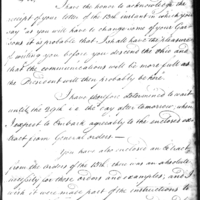 I have the honor to acknowledge the
receipt of your letter of the 13th instant in which you
say "as you will have to change some of your
it is probable that I shall have the pleasure
of meeting you before you descend the Ohio and
that the communications will be more full as
the President will then probably be here."
I have therefore determined to wait
until the 29th the day after tomorrow, when
I expect to Embark agreeably to the enclosed extract
from General orders.
You have also enclosed an Extract
from the orders of the 13th. there was an absolute
necessity for these orders and examples, and I
wish it were made part of the instructions to